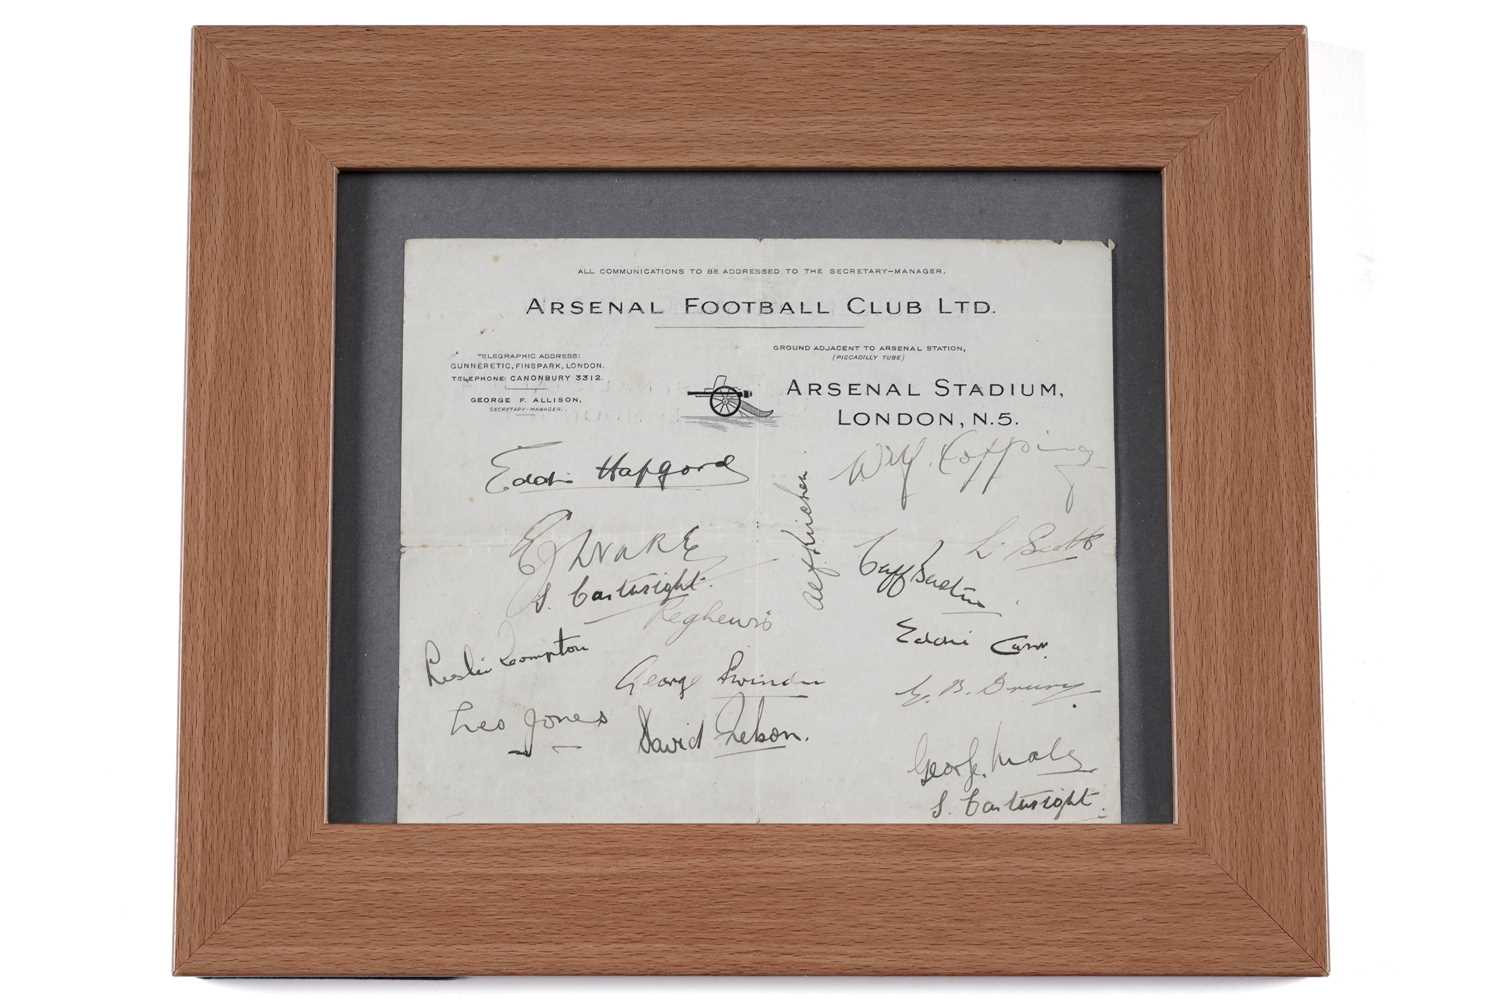 ALL COMMUNICATIONS TO BE ADDRESSED TO THE SECRETARY-MANAGER.
ARSENAL FOOTBALL CLUB LTD.
TELEGRAPHIC ADDRESS:
GUNNERETIC, FINSPARK, LONDON.
TELEPHONE: CANONBURY 3312.
GEORGE F. ALLISON,
SECRETARY-MANAGER.
GROUND ADJACENT TO ARSENAL STATION,
(PICCADILLY TUBE)
ARSENAL STADIUM,
LONDON, N.5.
Eddie Hapgood
Wilf. Copping
Alf Kirchen.
E J DRAKE
L. Scott
Cliff Bastin
S. Cartwright.
Reg Lewis
Eddie Carr.
Leslie Compton
George Swindin
G. B. Drury.
Leo Jones
David Nelson.
George Male
S. Cartwright.